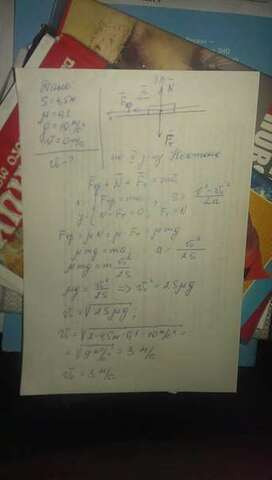 Дано:
S = 4,5м
μ = 0,1
g = 10 м/с²
V = 0 м/с
V₀ - ?
N
Fтр
Fт
по II з-ну Ньютона
Fтр + N + Fт = ma
Fтр = ma
N - Fт = 0, Fт = N
Fтр = μN = μ · Fт = μmg
μmg = ma, a = V₀²/2S
μmg = m V₀²/2S
μg = V₀²/2S => V₀² = 2Sμg
V₀ = √2Sμg
V₀ = √2·4,5м·0,1·10м/с² =
= √9 м²/с² = 3 м/с
V₀ = 3 м/с